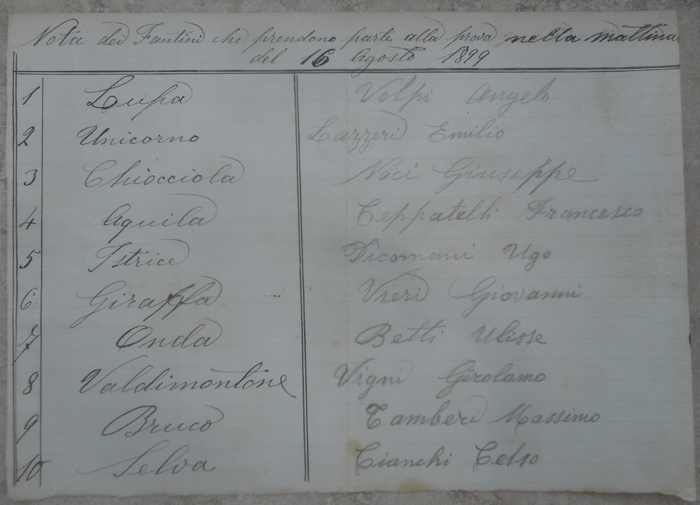 Nota dei Fantini che prendono parte alla prova nella mattina
del 16 Agosto 1899
1 Lupa Volpi Angelo
2 Unicorno Lazzeri Emilio
3 Chiocciola Naci Giuseppe
4 Aquila Ceppatelli Francesco
5 Istrice Dicomani Ugo
6 Giraffa Vieri Giovanni
7 Onda Betti Ulisse
8 Valdimontone Vigni Girolamo
9 Bruco Tamberi Massimo
10 Selva Cianchi Celso